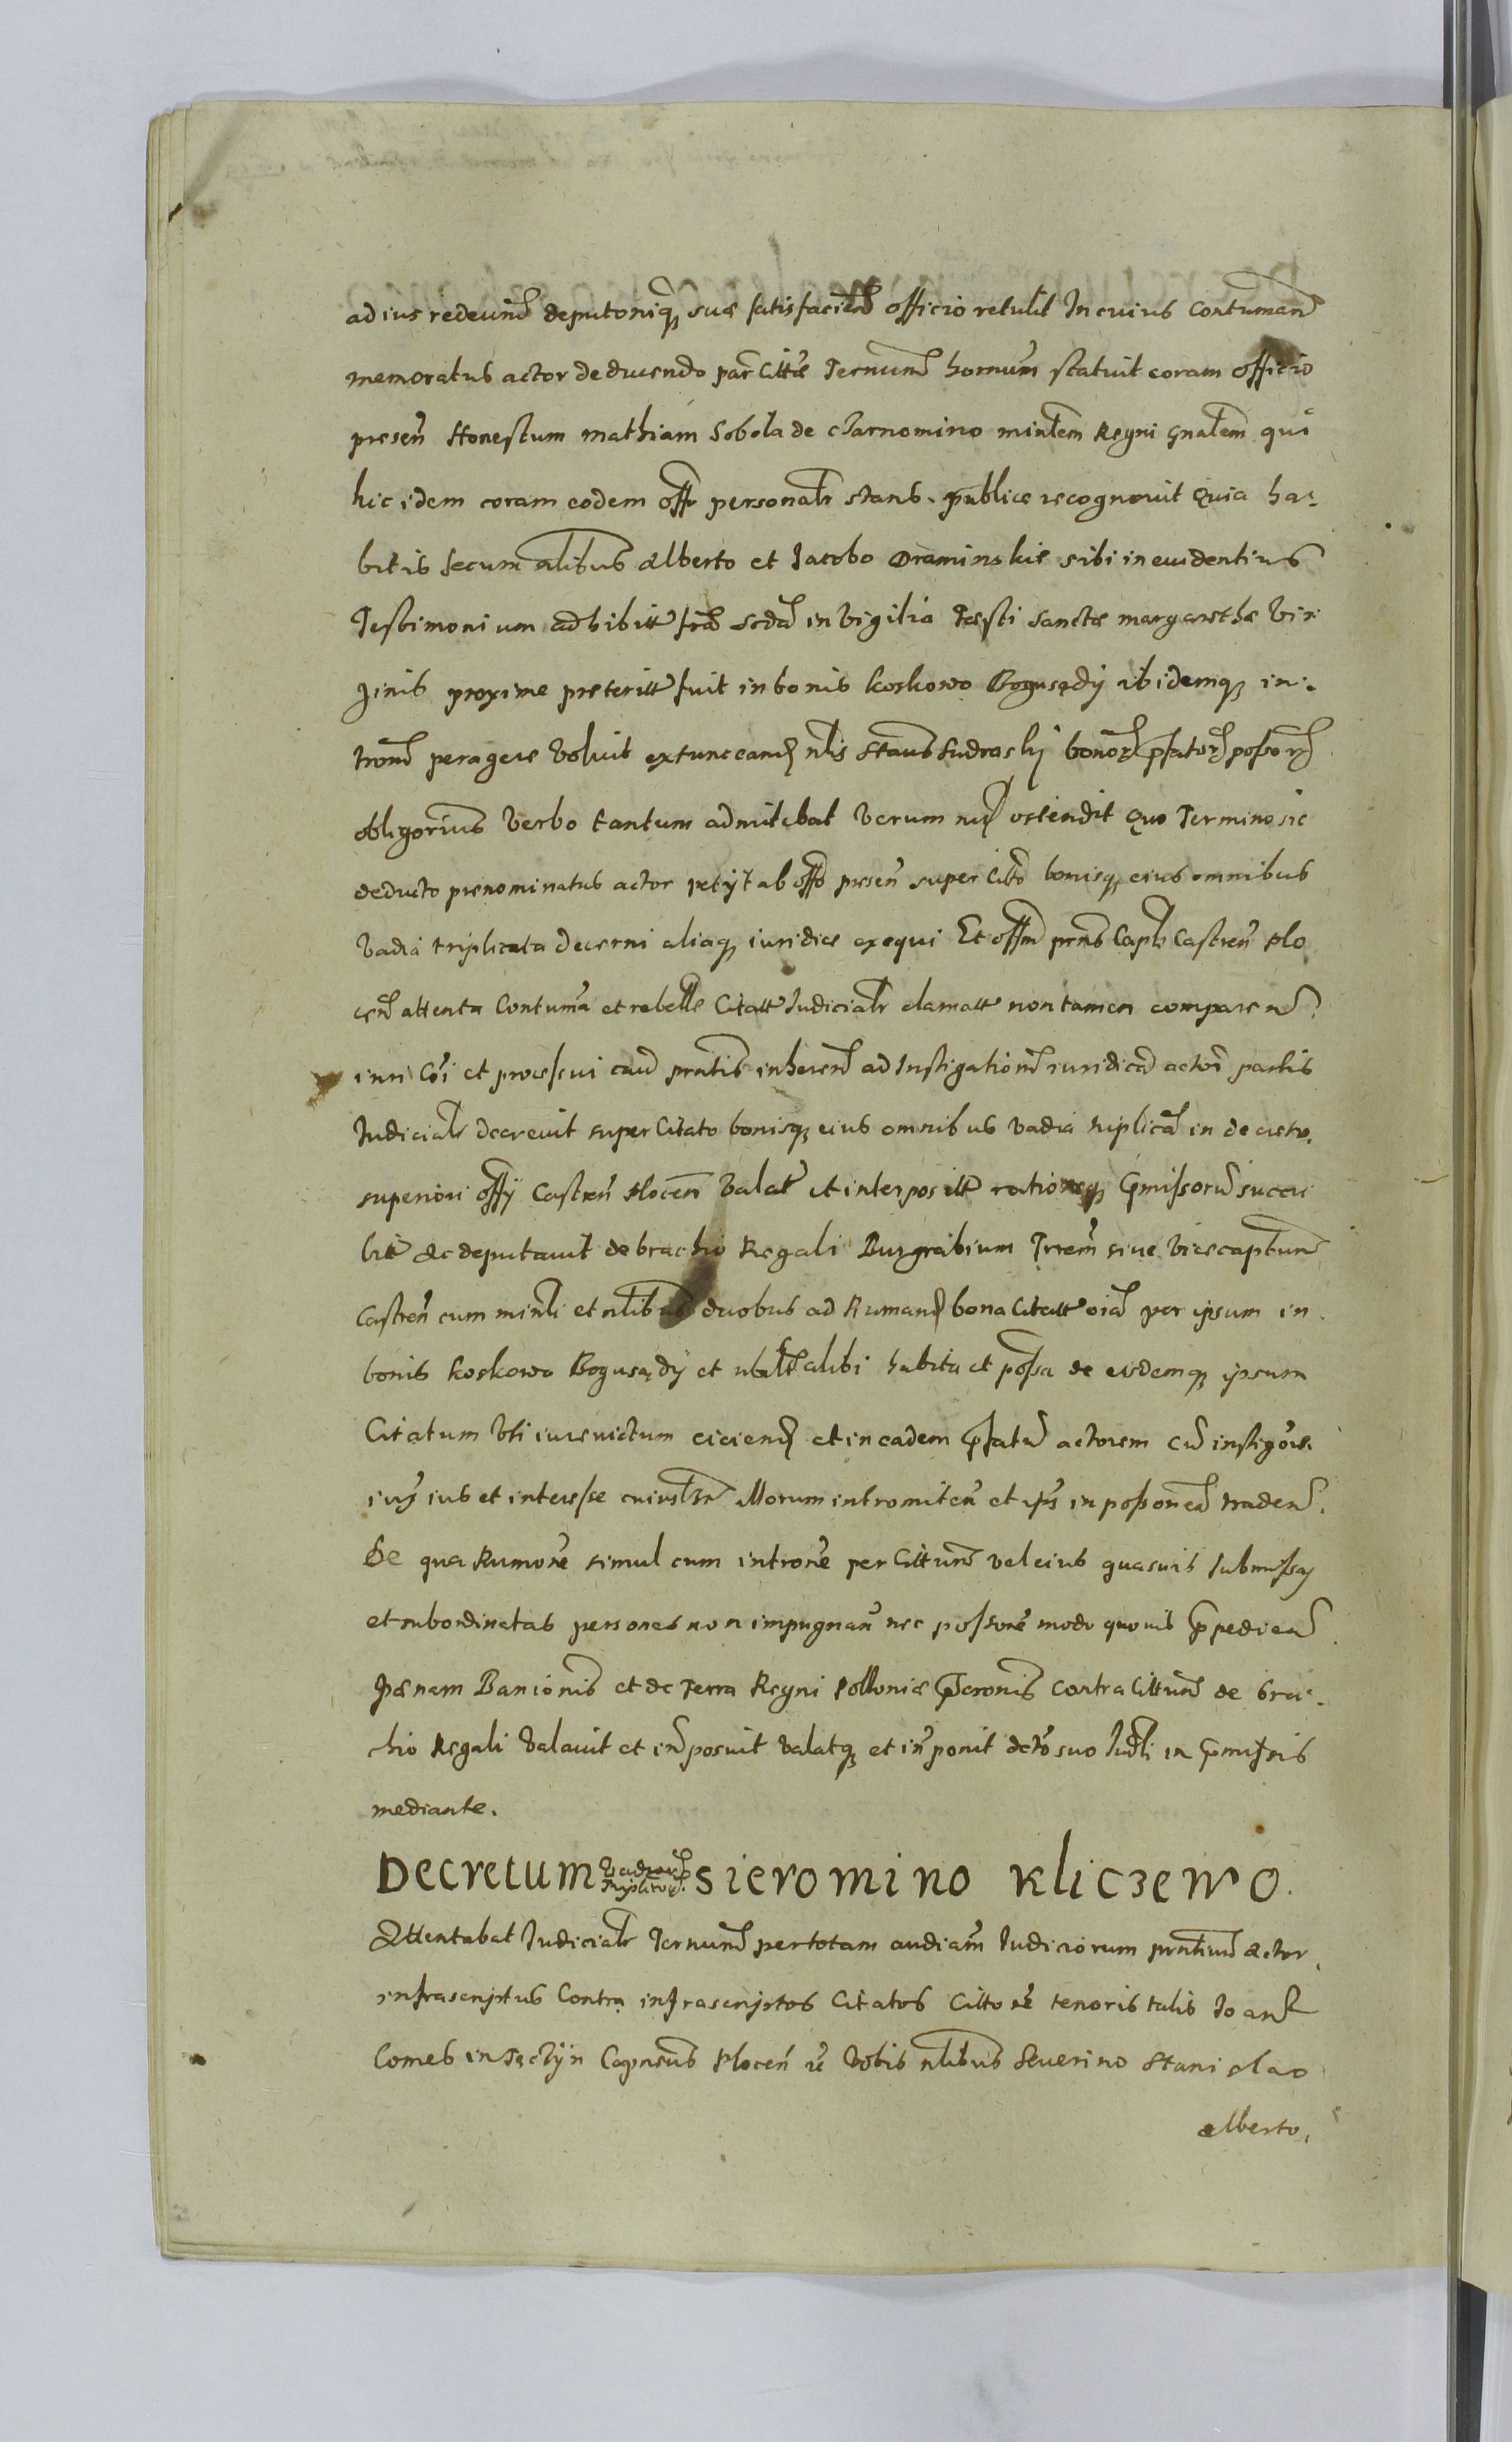 ad ius redeund deputoniq suæ satisfaciend officio retulit In cuius Contuman
memoratus actor deducendo par Citta Ternum hornum statuit coram officio
presen Honestum Mathiam Sobola de Czarnomino minlem Regni gnalem qui
hic idem coram eodem offo personalr stans. publice recognovit Quia ha-
bitis secum nlibus Alberto et Jacobo Draminskie sibi in euidentius
Testimonium adhibitt fra scda in vigilia Festi Sanctæ margarethæ Vir
ginis proxime preteritt fuit in bonis koskowo Bogusędÿ ibidemq in-
tromn peragere voluit extunc eand nlis Stanus Sudraskÿ bonor pfator possor
obligorius verbo tantum admitebat verum nis ostendit Quo Termino sic
deducto prenominatus actor petÿt ab offo presen super Citto bonisq eius omnibus
vadia triplicata decerni aliaq iuridice exequi Et offm prns Caplis Castren Plo
cen attenta Contuma et rebelle Citatt Judicialr clamatt non tamen comparen
iuri coi et processui caus prntis inheren ad Instigationem iuridica actor partis
Judicialr decrevit super Citato bonisq eius omnibus vadia triplica in decreto
superiori offÿ Castren Plocen valat et interpositt rationeq pmissoru succu
bitt Ac deputavit de brachio Regali Burgrabium Trrem siue vicecaptum
Castren cum minli et nlibus duobus ad Rumand bona Citatt oia per ipsum in
bonis koskowo Bogusędÿ et ubilt alibi habita et possa de eisdemq ipsum
Citatum Uti iure victum eiciend et in eadem pfatu actorem cu instigore
ius et interesse illorum intromiten et ips in possonem traden.
De qua Rumone simul cum introne per Cittum vel eius quasvis submissas
et subordinatas personas non impugnan nec possone modo quovis ppedien
Pænam Banionis et de Terra Regni Poloniæ pscronis contra Cittum de bra-
chio Regali valavit et in posuit valatq et in ponit decto suo Judli in pmissis
mediante.
Decretum vadior triplicor Sieromino kliczewo.
Attentabat Judicialr Ternum per totam audiam Judiciorum prntium Actor
infrascriptus Contra infrascriptos Citatos Citto re tenoris talis Joans
Comes in Tęczÿn Capneus Plocen re vobis nlibus Severino Stanislao
Alberto,